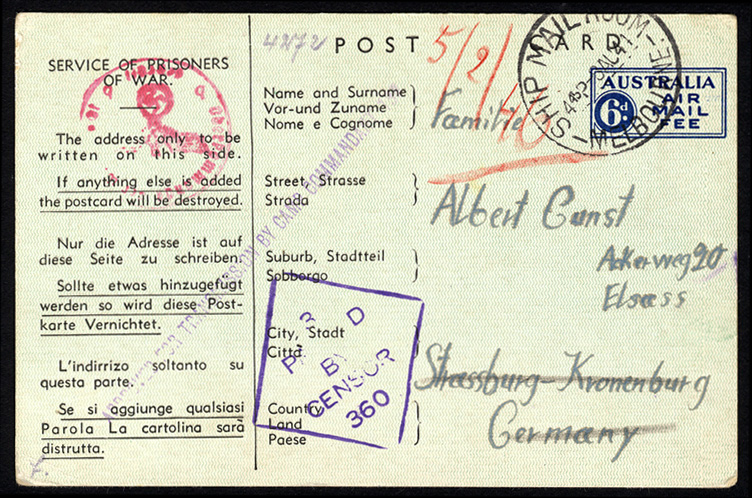 4272
POST CARD
5/2/40
SERVICE OF PRISONERS
OF WAR.
The address only to be
written on this side.
If anything else is added
the postcard will be destroyed.
Nur die Adresse ist auf
diese Seite zu schreiben.
Sollte etwas hinzugefugt
werden so wird diese Post-
karte Vernichtet.
L'indirrizo soltanto su
questa parte.
Se si aggiunge qualsiasi
Parola La cartolina sarà
distrutta.
APPROVED FOR TRANSMISSION BY CAMP COMMANDANT
Name and Surname
Vor-und Zuname
Nome e Cognome
Familie
Street, Strasse
Strada
Albert Gunst
Suburb, Stadtteil
Sobborgo
Ackerweg 20
Elsass
City, Stadt
Città.
Strassburg-Kronenburg
Country
Land
Paese
Germany
3 D
BY
CENSOR
360
SHIP MAIL ROOM
-MELBOURNE-
AUSTRALIA
6d AIR
MAIL
FEE